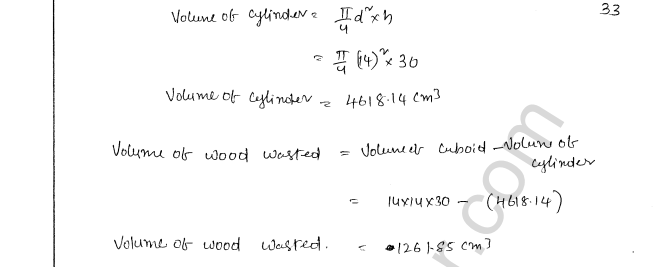 33
Volume of cylinder = π/4 d² × h
= π/4 (14)² × 30
Volume of cylinder = 4618.14 cm³
Volume of wood wasted = Volume of cuboid - Volume of cylinder
= 14×14×30 - (4618.14)
Volume of wood wasted. = 1261.85 cm³
.com